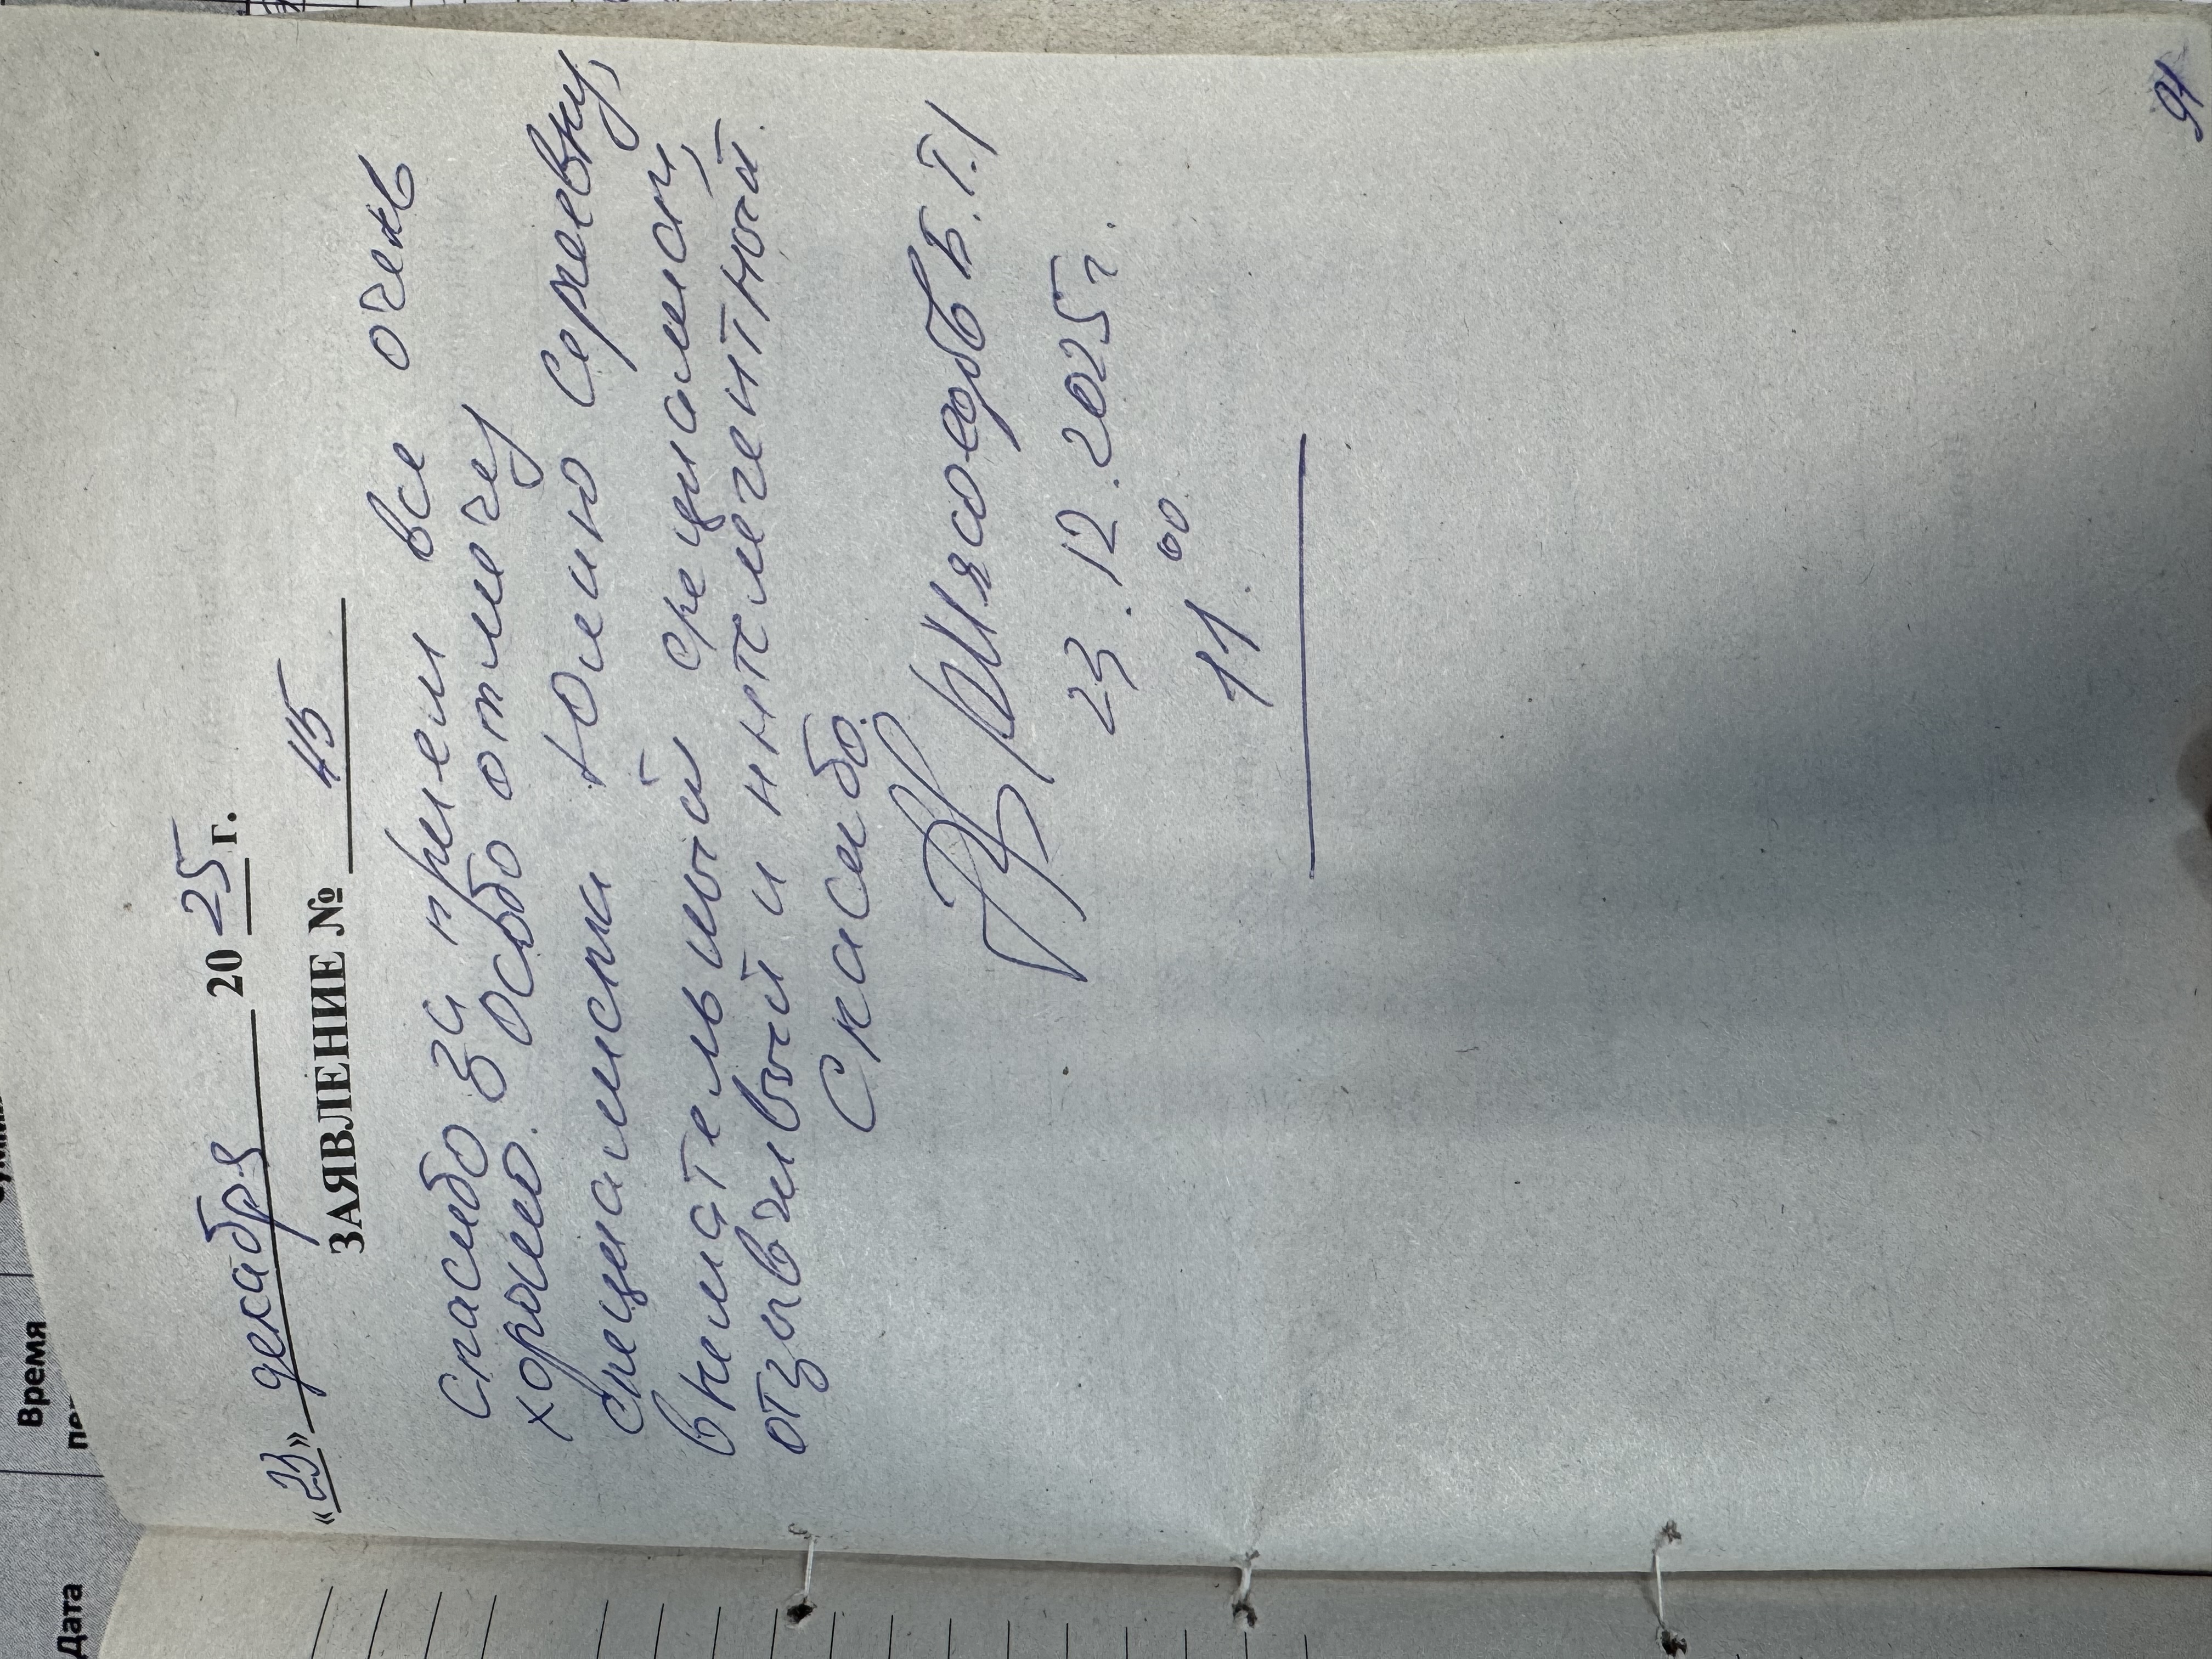 Время
Дата
«23» декабря 2025 г.
ЗАЯВЛЕНИЕ № 45
Спасибо за прием все очень
хорошо. Особо отмечу
специалиста Юлию Сергеевну,
внимательный специалист,
отзывчивый и интелегентный.
Спасибо.
23.12.2025г.
11.00
91